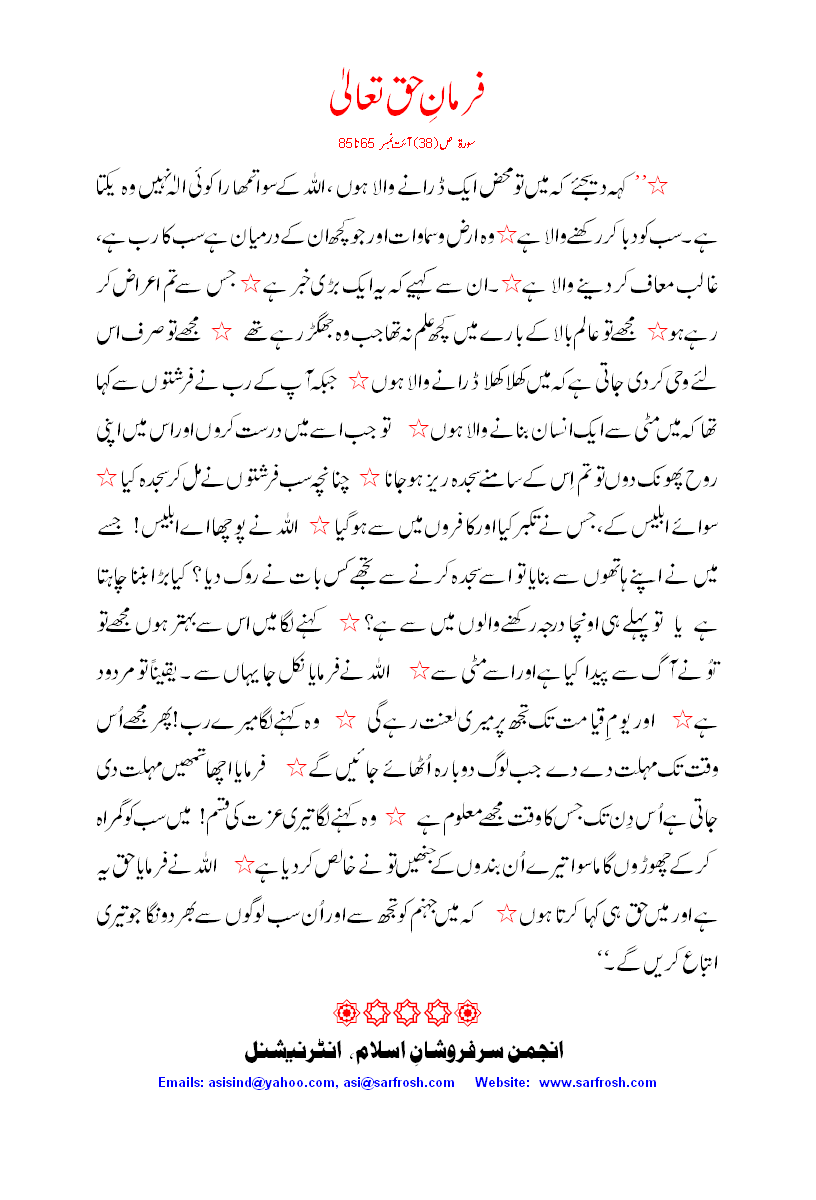 فرمانِ حق تعالیٰ
سورۃ ص (38) آئت نمبر 65 تا 85
☆’’ کہہ دیجئے کہ میں تو محض ایک ڈرانے والا ہوں، اللہ کے سوا تمھارا کوئی الٰہ نہیں وہ یکتا
ہے۔ سب کو دبا کر رکھنے والا ہے☆ وہ ارض و سماوات اور جو کچھ ان کے درمیان ہے سب کا رب ہے،
غالب معاف کر دینے والا ہے☆۔ ان سے کہیے کہ یہ ایک بڑی خبر ہے☆ جس سے تم اعراض کر
رہے ہو☆ مجھے تو عالم بالا کے بارے میں کچھ علم نہ تھا جب وہ جھگڑ رہے تھے ☆ مجھے تو صرف اس
لئے وحی کر دی جاتی ہے کہ میں کھلا کھلا ڈرانے والا ہوں☆ جبکہ آپ کے رب نے فرشتوں سے کہا
تھا کہ میں مٹی سے ایک انسان بنانے والا ہوں☆ تو جب اسے میں درست کروں اور اس میں اپنی
روح پھونک دوں تو تم اِس کے سامنے سجدہ ریز ہو جانا ☆ چنانچہ سب فرشتوں نے مل کر سجدہ کیا ☆
سوائے ابلیس کے، جس نے تکبر کیا اور کافروں میں سے ہو گیا ☆ اللہ نے پوچھا اے ابلیس! جسے
میں نے اپنے ہاتھوں سے بنایا تو اسے سجدہ کرنے سے تجھے کس بات نے روک دیا؟ کیا بڑا بننا چاہتا
ہے یا تو پہلے ہی اونچا درجہ رکھنے والوں میں سے ہے؟ ☆ کہنے لگا میں اس سے بہتر ہوں مجھے تو
توُ نے آگ سے پیدا کیا ہے اور اسے مٹی سے☆ اللہ نے فرمایا نکل جا یہاں سے ۔ یقیناً تو مردود
ہے☆ اور یومِ قیامت تک تجھ پر میری لعنت رہے گی ☆ وہ کہنے لگا میرے رب! پھر مجھے اُس
وقت تک مہلت دے دے جب لوگ دوبارہ اُٹھائے جائیں گے☆ فرمایا اچھا تمھیں مہلت دی
جاتی ہے اُس دِن تک جس کا وقت مجھے معلوم ہے ☆ وہ کہنے لگا تیری عزت کی قسم! میں سب کو گمراہ
کر کے چھوڑوں گا ماسوا تیرے اُن بندوں کے جنھیں تو نے خالص کر دیا ہے☆ اللہ نے فرمایا حق یہ
ہے اور میں حق ہی کہا کرتا ہوں☆ کہ میں جہنم کو تجھ سے اور اُن سب لوگوں سے بھر دونگا جو تیری
اتباع کریں گے۔‘‘
انجمن سرفروشانِ اسلام، انٹرنیشنل
Emails: asisind@yahoo.com, asi@sarfrosh.com Website: www.sarfrosh.com